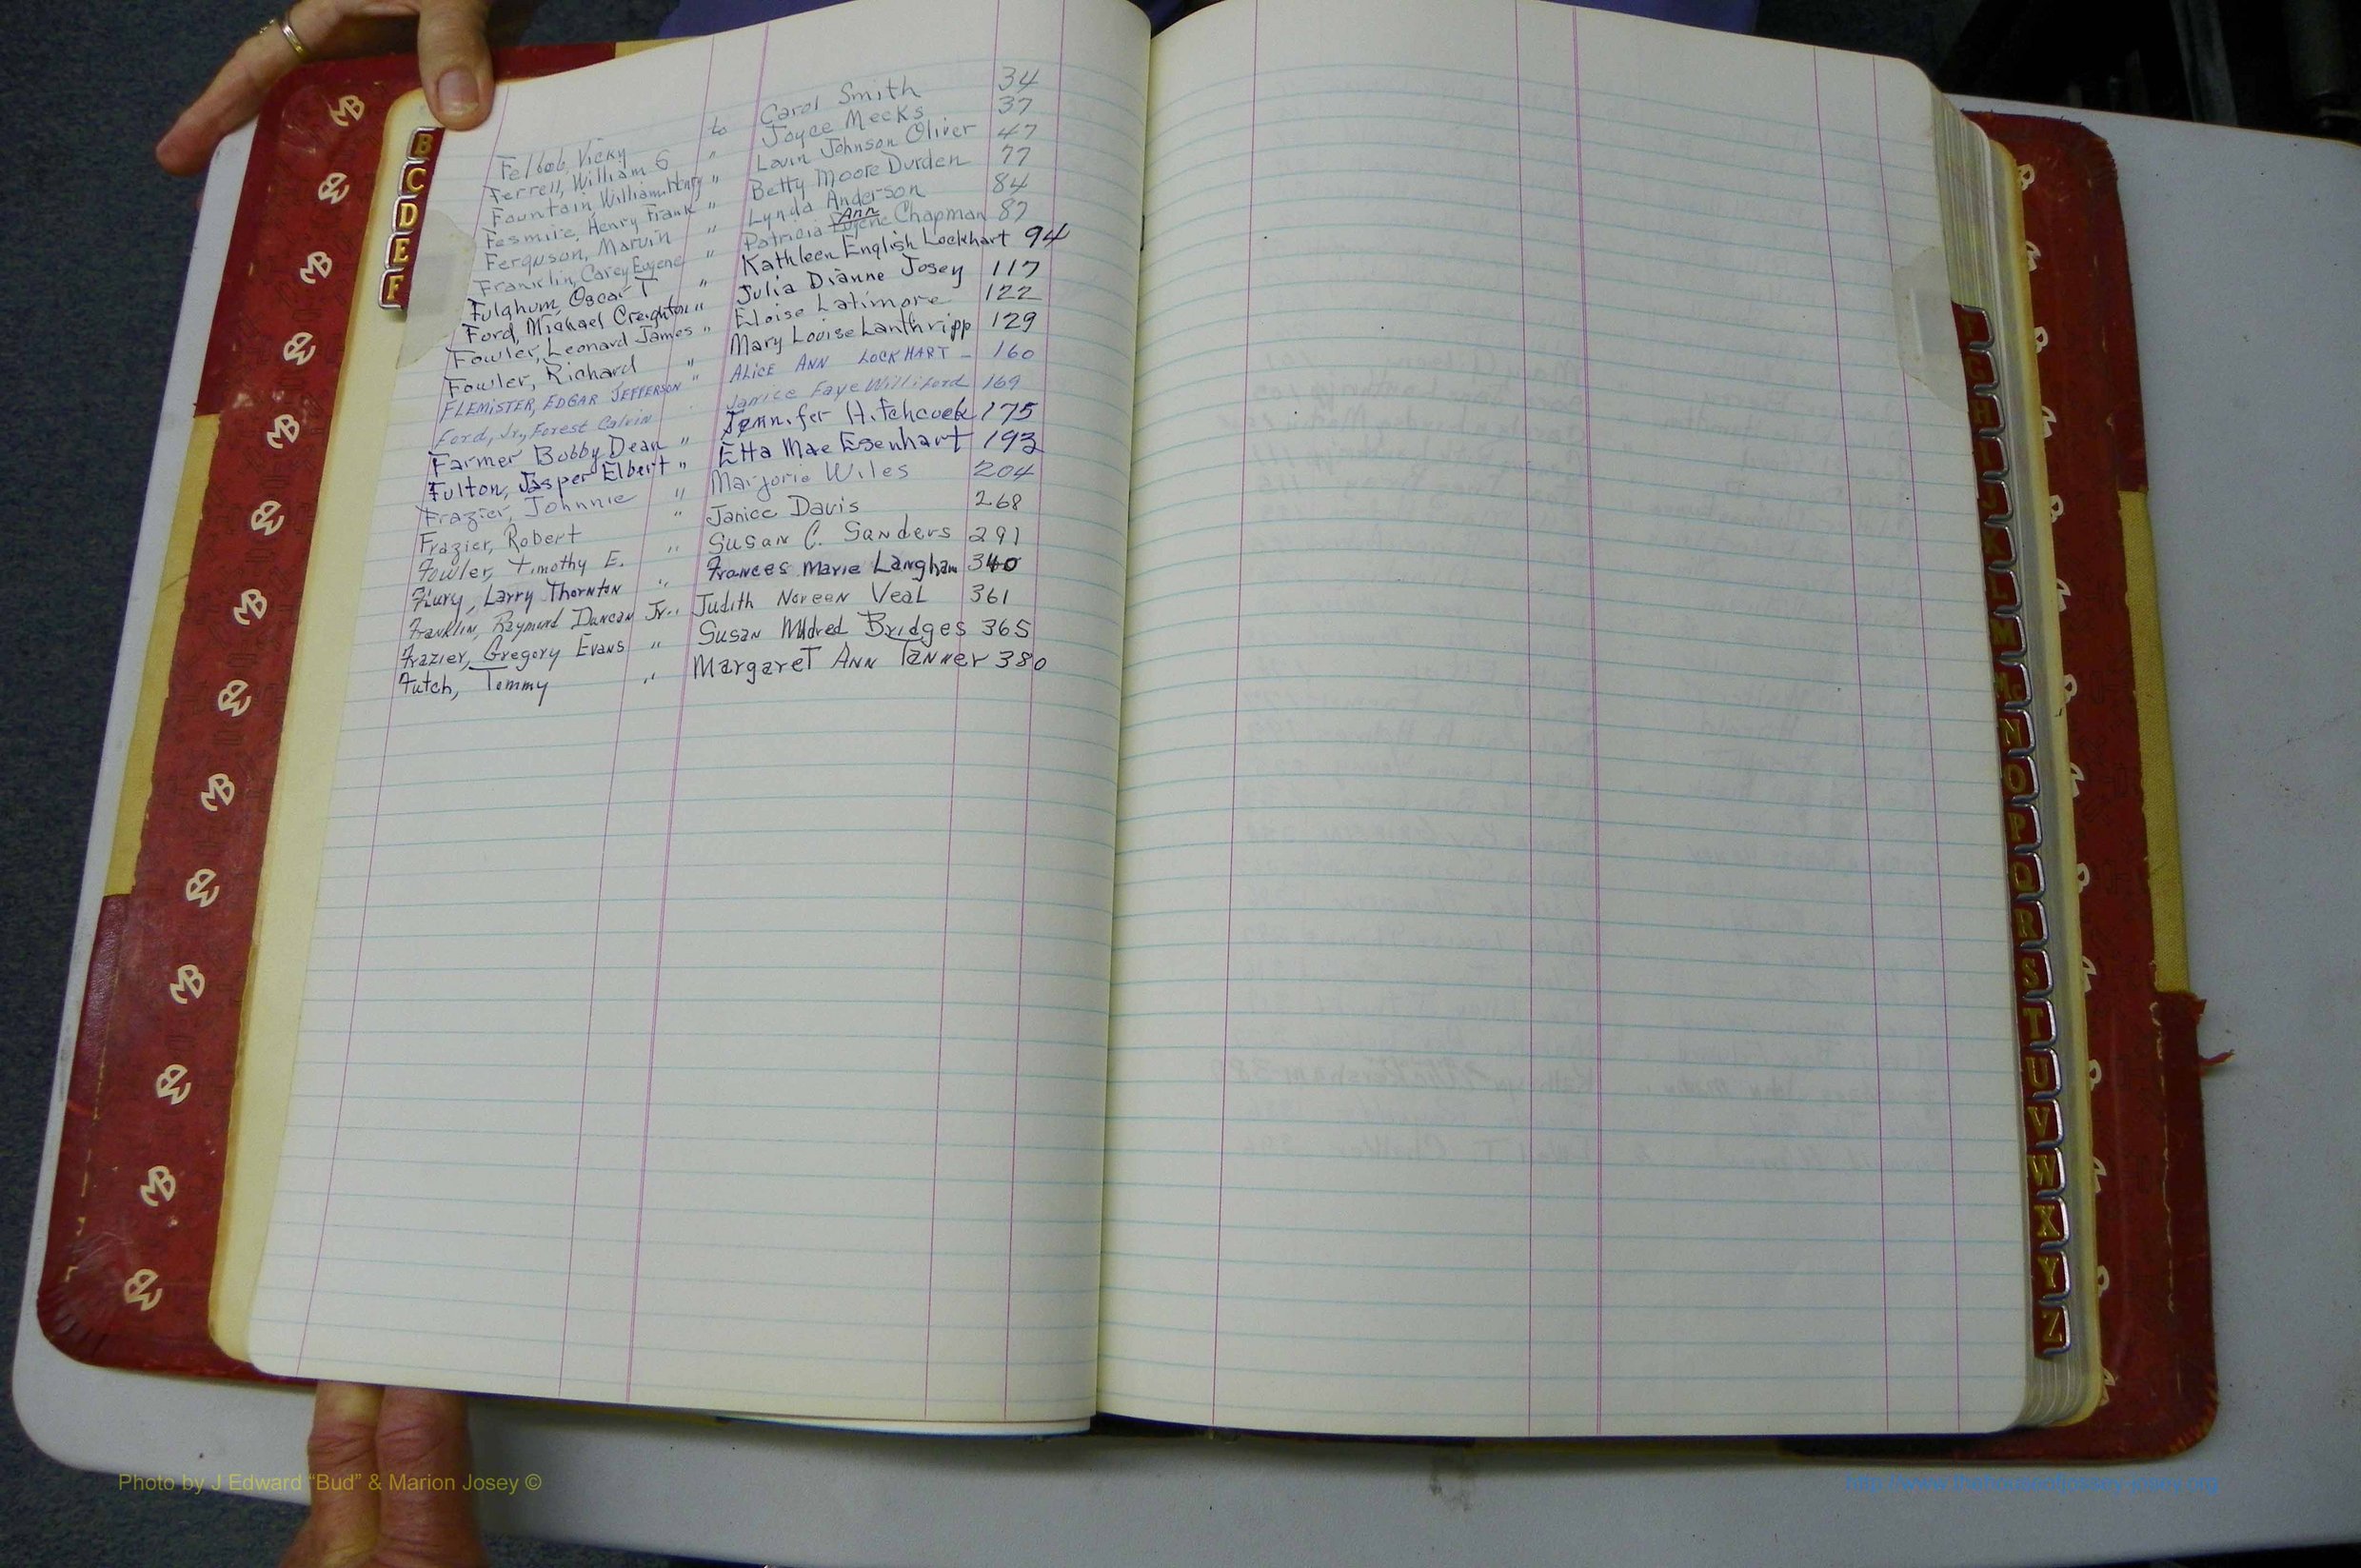 Vicky to Carol Smith 34
Ferrell, William G " Joyce Meeks 37
Fountain William Henry " Louin Johnson Oliver 47
Fesmire, Henry Frank " Betty Moore Durden 77
Ferguson, Marvin " Lynda Anderson 84
Ann
Franklin, Carey Eugene " Patricia Eugene Chapman 87
Fulghum, Oscar T " Kathleen English Lockhart 94
Ford, Michael Creighton " Julia Dianne Josey 117
Fowler, Leonard James " Eloise Latimore 122
Fowler, Richard " Mary Louise Lanthripp 129
FLEMISTER, EDGAR JEFFERSON " ALICE ANN LOCKHART - 160
Ford, Jr., Forest Calvin Janice Faye Williford 169
Farmer Bobby Dean " Jennifer Hitchcock 175
Fulton, Jasper Elbert " Etta Mae Esenhart 193
Frazier, Johnnie " Marjorie Wiles 204
Frazier, Robert " Janice Davis 268
Fowler, Timothy E. " Susan C. Sanders 291
Flury, Larry Thornton " Frances Marie Langham 340
Franklin, Raymond Duncan Jr. " Judith Noreen Veal 361
Frazier, Gregory Evans " Susan Mildred Bridges 365
Futch, Tommy " Margaret Ann Tanner 380
B
C
D
E
F
H
I
J
K
L
M
Mc
N
O
P
Q
R
S
T
U
V
W
X
Y
Z
Photo by J Edward “Bud” & Marion Josey ©